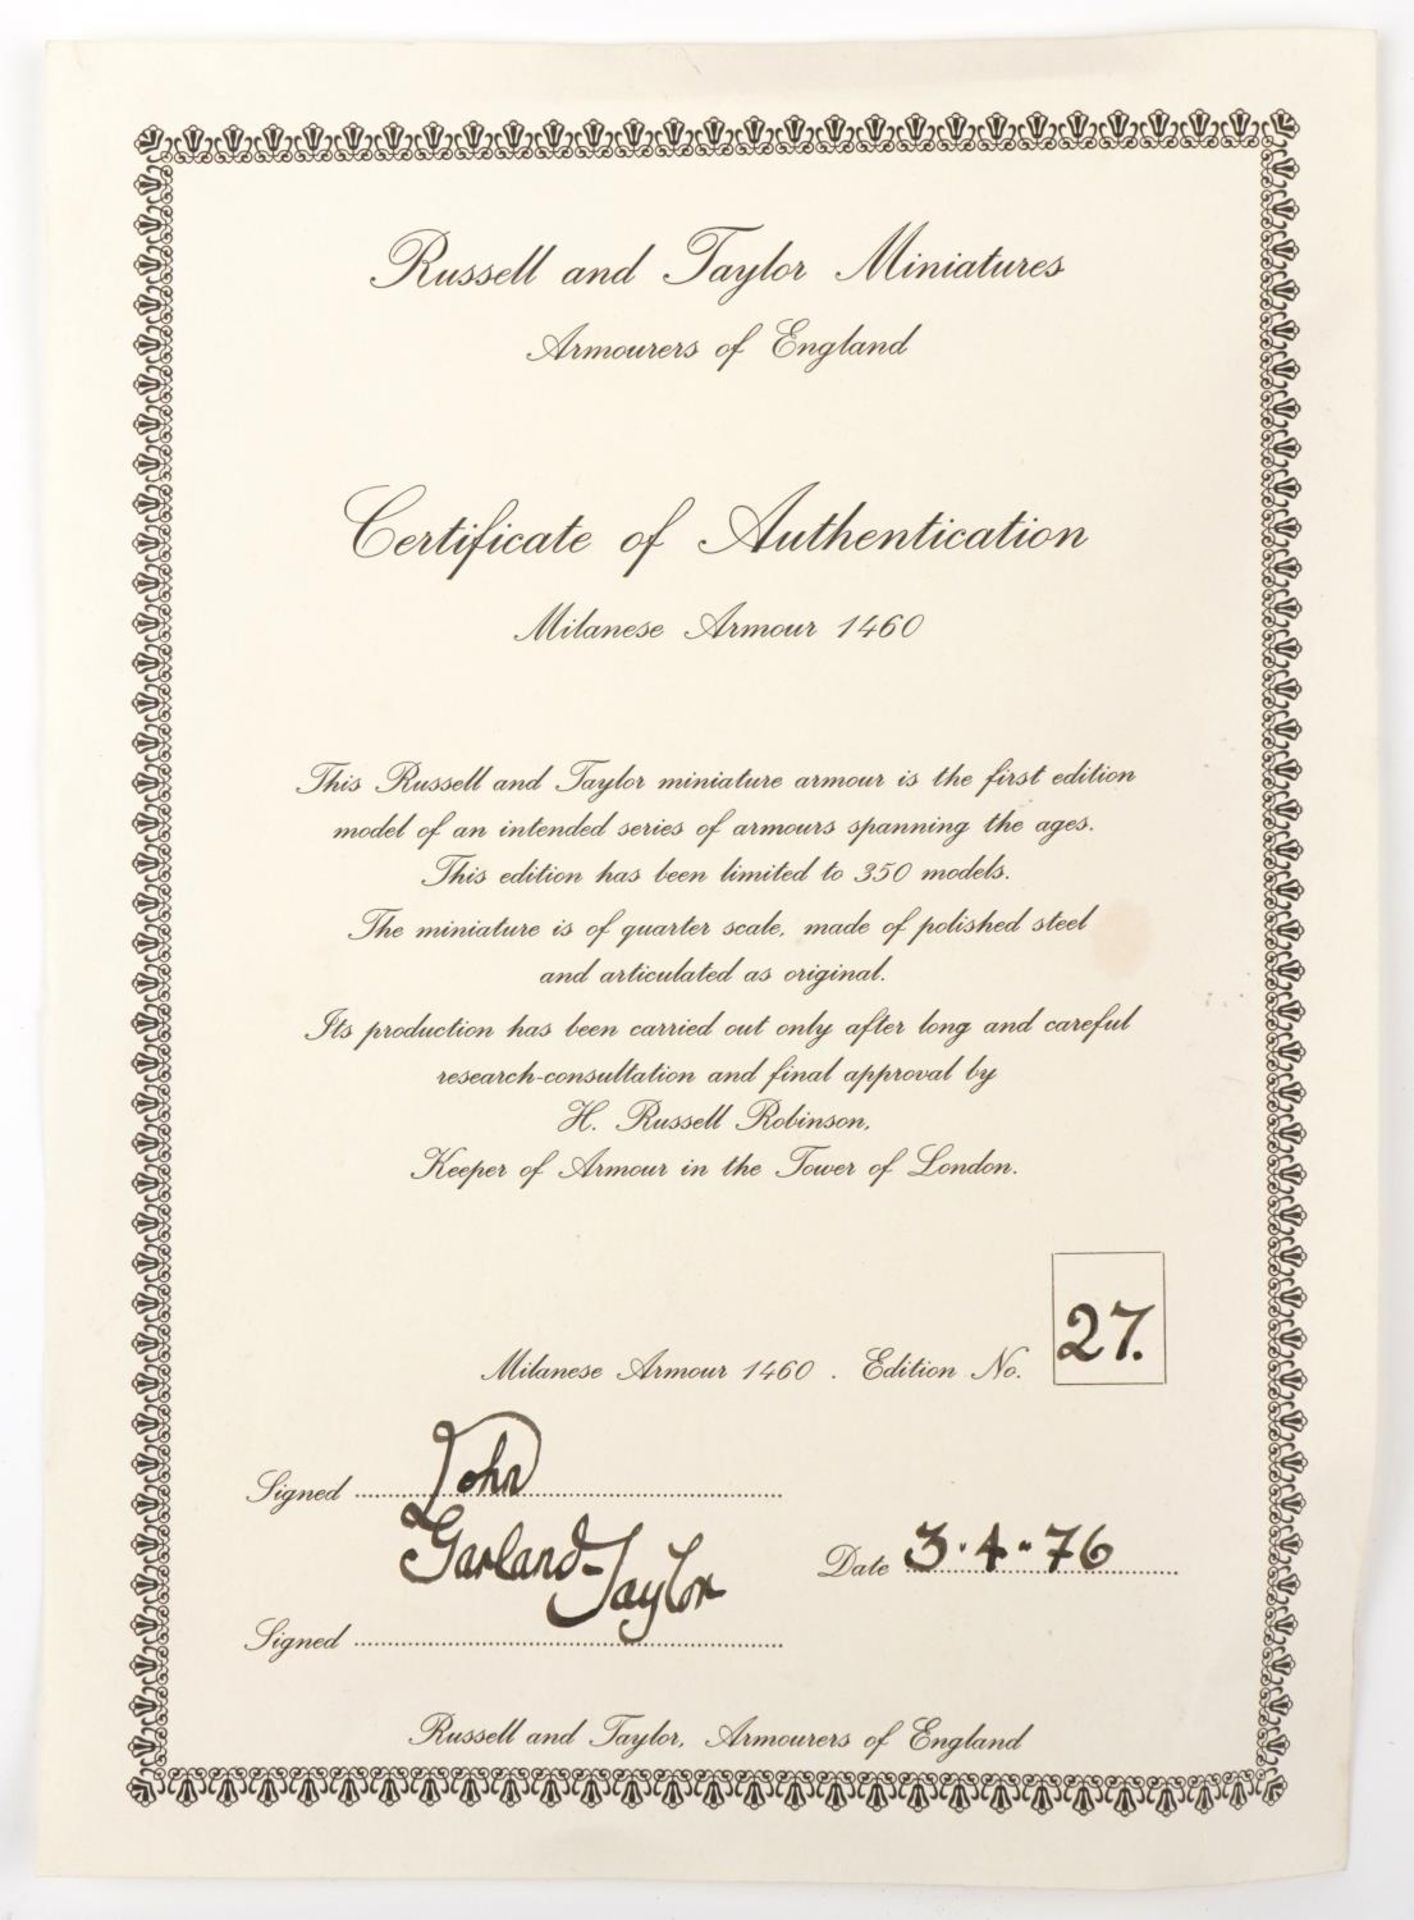 Russell and Taylor Miniatures
Armourers of England
Certificate of Authentication
Milanese Armour 1460
This Russell and Taylor miniature armour is the first edition
model of an intended series of armours spanning the ages.
This edition has been limited to 350 models.
The miniature is of quarter scale, made of polished steel
and articulated as original.
Its production has been carried out only after long and careful
research-consultation and final approval by
H. Russell Robinson,
Keeper of Armour in the Tower of London.
Milanese Armour 1460 . Edition No. 27.
Signed John
Garland-Taylor
Date 3.4.76
Signed
Russell and Taylor, Armourers of England